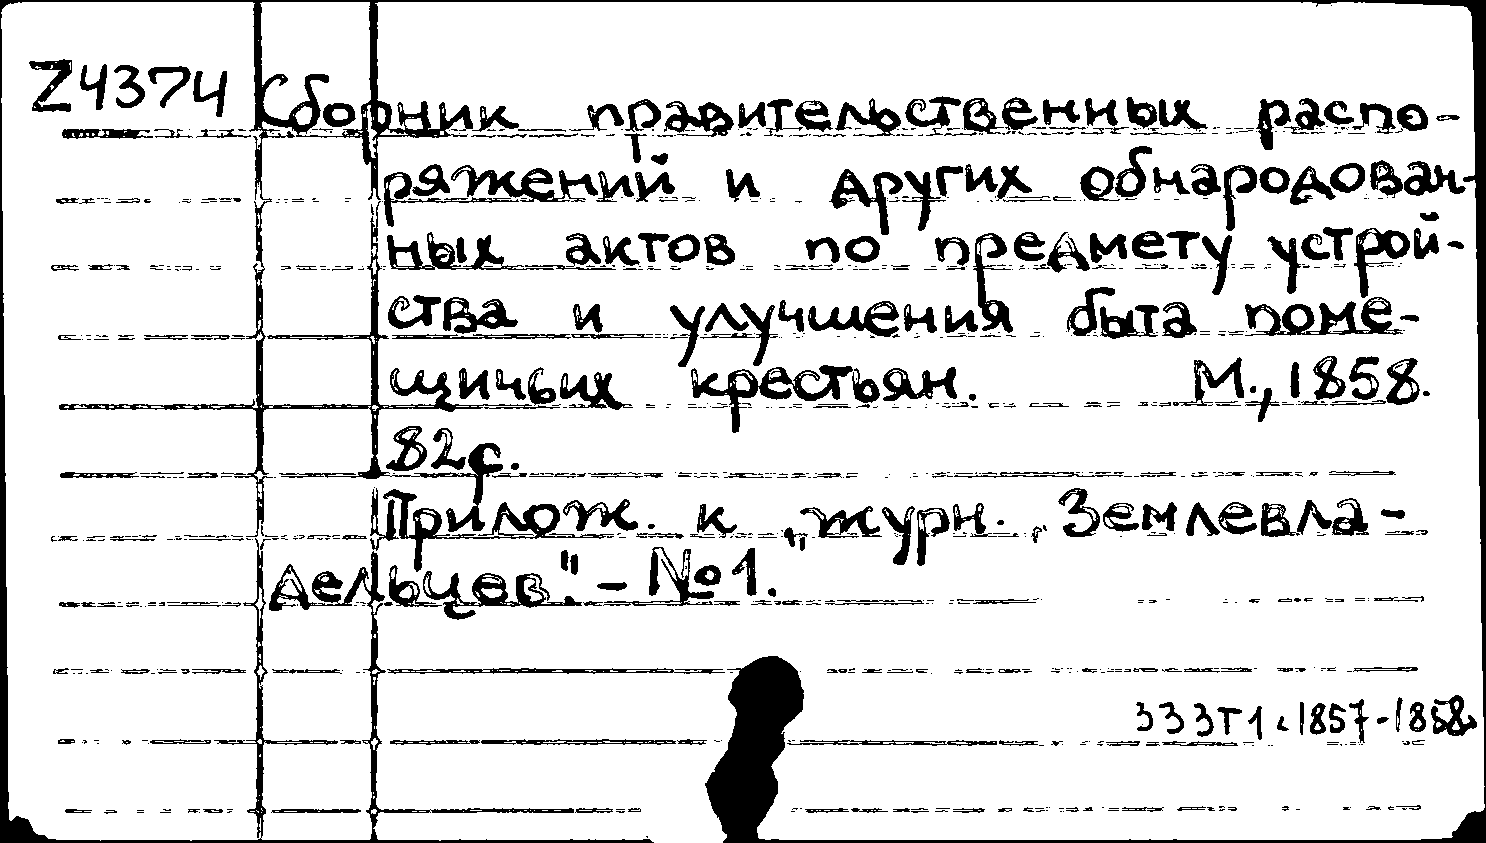 Z4374 Сборник правительственных распо-
ряжений и других обнародован-
ных актов по предмету устрой-
ства и улучшения быта поме-
щичьих крестьян. М., 1858.
82с.
Прилож. к „журн. „Землевла-
дельцев". - №1.
333Т1 <1857-1858>